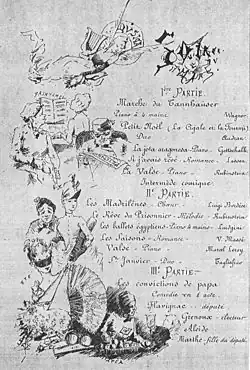 PRINTEMPS
1ère PARTIE
Marche du Tannhauser
Piano à 4 mains Wagner
Petit Noël (La Cigale et la Fourmi)
Duo Audran
La jota aragonesa - Piano - Gottschalk
Si j'avais rêvé - Romance -
La Valse - Piano - Rubinstein
Intermède comique
IIe PARTIE
Les Madrilènes - Chœur - Luigi Bordèse
Le Rêve du Prisonnier - Mélodie - Rubinstein
Les ballets égyptiens - Piano 4 mains - Luigini
Les Saisons - Romance - V. Massé
Valse - Piano - Marcel
St Janvier - Duo - Tagliafico
IIIe PARTIE
Les convictions de papa
Comédie en 1 acte
député
électeur
Marthe - fille du député